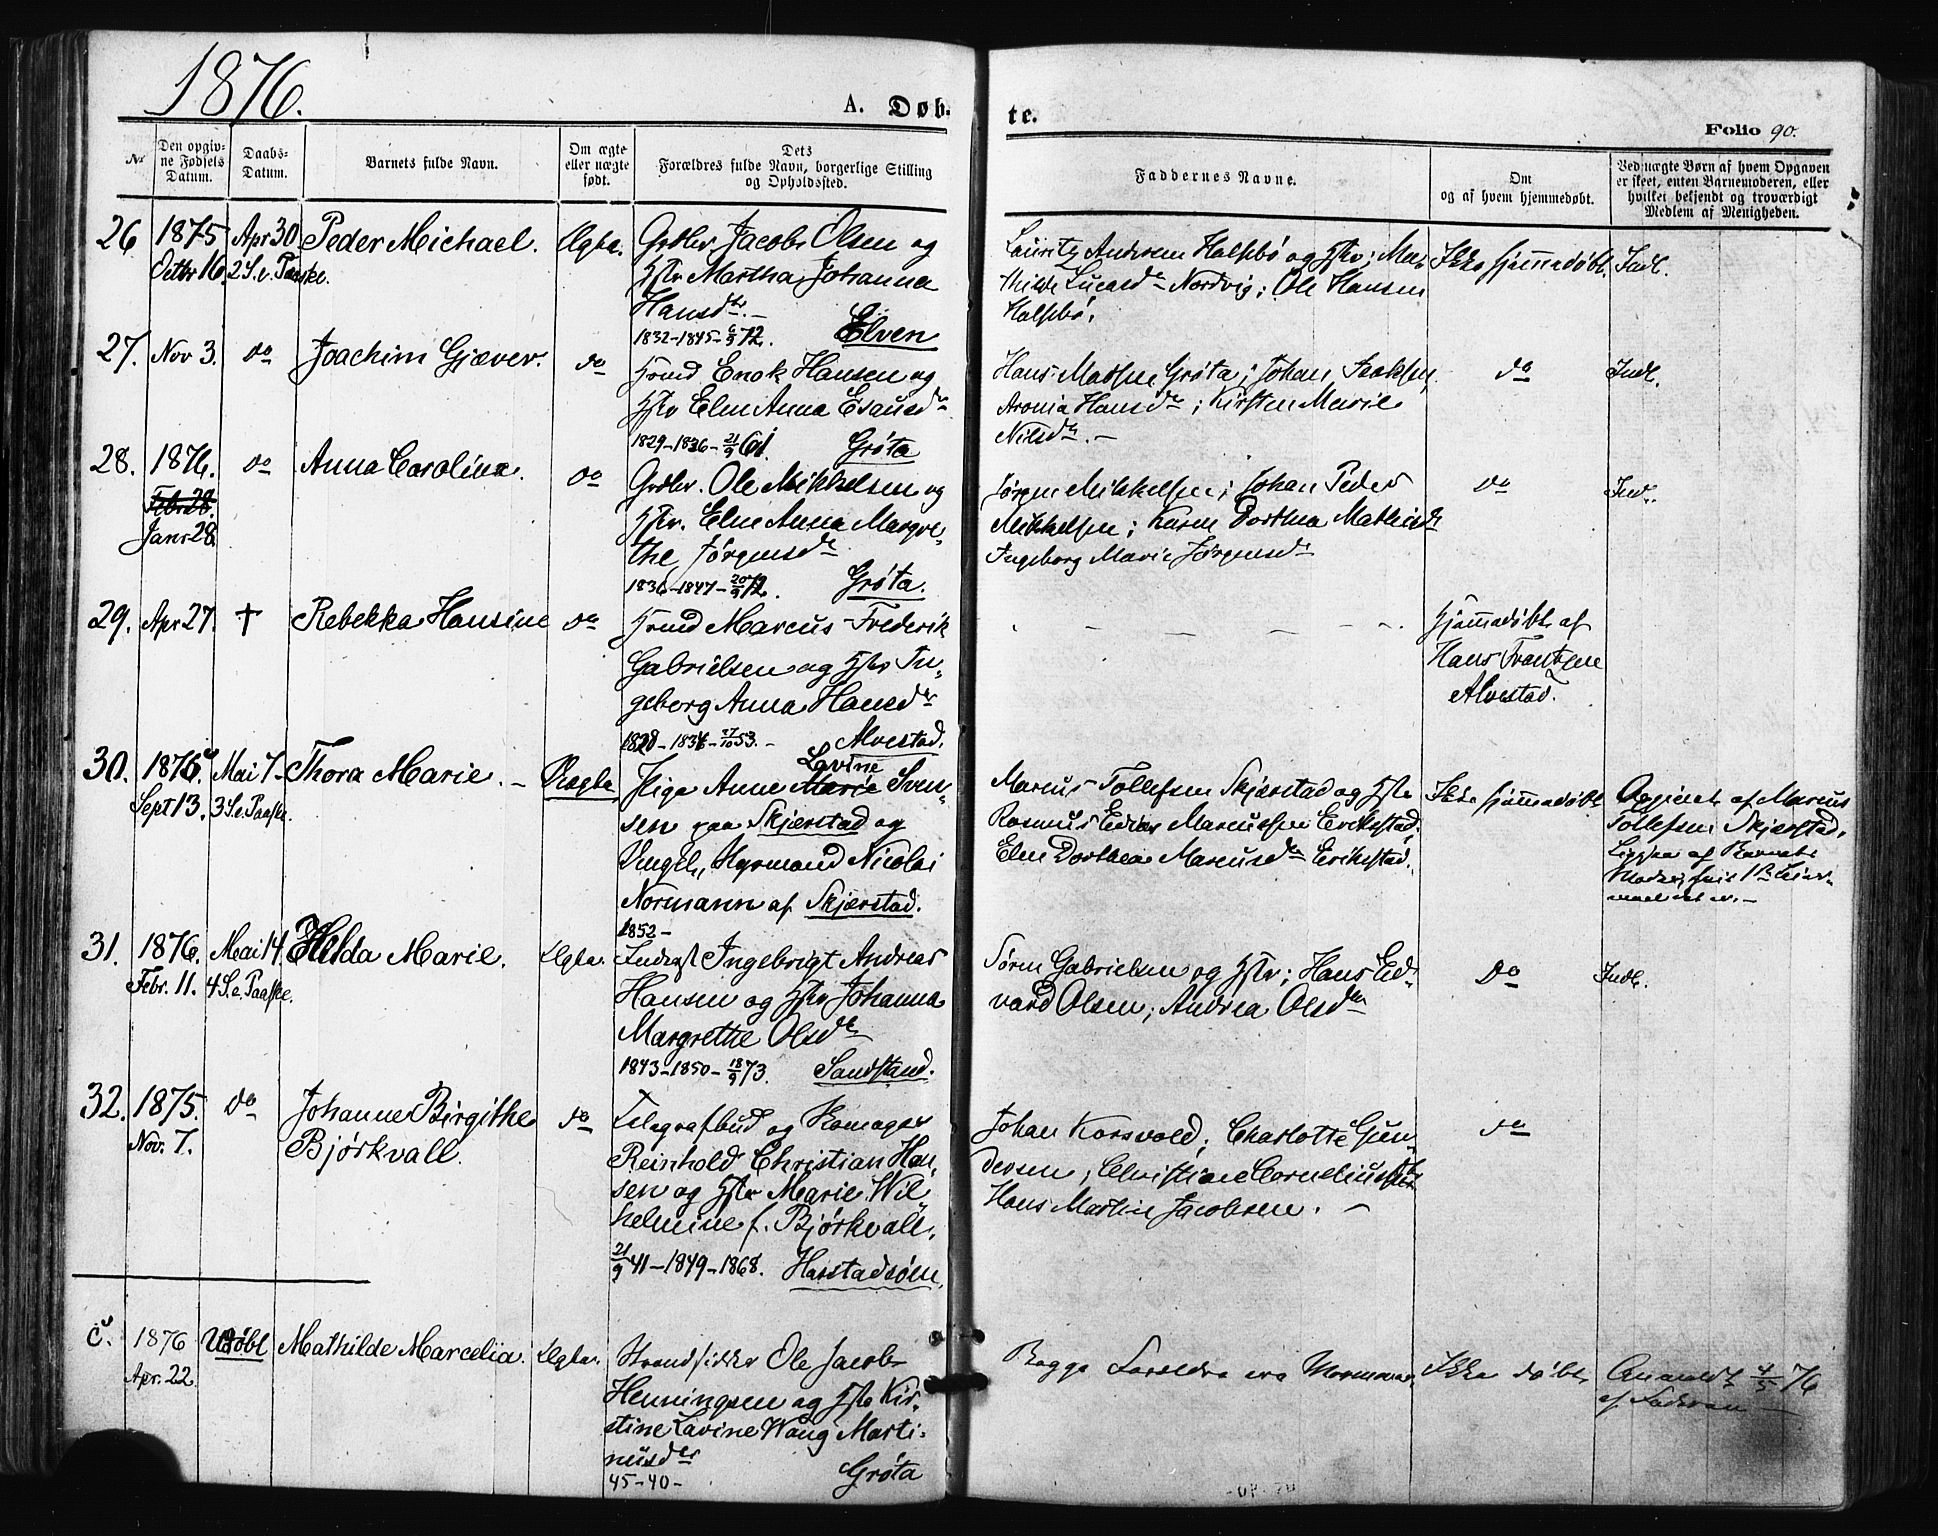 1876.
A. Døb-
te.
Folio 90.
No
Den opgiv-
ne Fødsels
Datum.
Daabs-
Datum.
Barnets fulde Navn.
Om ægte
eller uægte
født.
Dets
Forældres fulde Navn, borgerlige Stilling
og Opholdssted.
Faddernes Navne.
Om
og af hvem hjemmedøbt.
Ved uægte Børn af hvem Opgaven
er skeet, enten Barnemoderen, eller
hvilket bekjendt og troværdigt
Medlem af Menigheden.
26
1875
Octbr 16
Apr 30.
2 S. e. Paaske.
Peder Michael.
Ægte.
Grdbr. Jacob Olsen og
Hstr Martha Johanna
Hansdtr. –
1832–1845–6/9 72. Elven
Lauritz Andersen Halsebø og Hstr; Ma-
thilde Lucasdr Nordvig; Ole Hansen
Halsebø.
Ikke hjemmedøbt.
Indl.
27.
Nov 3.
do
Joachim Gjæver.
do
Hmd Enok Hansen og
Hstr Elen Anna Esausdr
1829–1836–21/9 61. Grøta
Hans Madsen Grøta; Johan Isaksen
Aronia Hansdr; Kirsten Marie
Nilsdr. –
do
Indl.
28.
1876.
Febr 28.
Janr 28.
do
Anna Caroline.
do
Grdbr. Ole Mikkelsen og
Hstr. Elen Anna Margre-
the Jørgensdr
1836–1847–20/9 72. Grøta.
Jørgen Mikkelsen; Johan Peder
Mikkelsen; Karen Dorthea Mathisdr
Ingeborg Marie Jørgensdr
do
Ind.
29.
Apr 27.
†
Rebekka Hansine
do
Hmd Marcus Frederik
Gabrielsen og Hstr In-
geborg Anna Hansdtr
1828–1836–27/10 53. – Alvestad.
Hjemmedøbt af
Hans Frantzen
Alvestad.
30.
1875
Sept 13.
Mai 7
3 S. e. Paaske.
Thora Marie. –
Uægte
Pige Anne Marie Lovine Sven-
sen paa Skjærstad og
Ungk., Nicolai
Normann af Skjærstad.
1852 –
Marcus Tollefsen Skjærstad og Hstr
Rasmus Edias Marcussen Erikstad.
Elen Dorthea Marcusdr Erikstad.
Ikke hjemmedøbt
Opgivet af Marcus
Tollefsen Skjærstad,
af Barnets
Moder,
31.
1876.
Febr. 11.
Mai 14
4 S. e. Paaske.
Hilda Marie.
Ægte.
Inderst Ingebrigt Andreas
Hansen og Hstr Johanna
Margrethe Olsdtr
1843–1850–18/9 73. Sandstand.
Søren Gabrielsen og Hstr; Hans Ed-
vard Olsen; Andrea Olsdtr
Do
Indl.
32.
1875.
Nov. 7.
do
Johanne Birgithe
Bjørkvall.
do
Telegrafbud og Skomager
Reinhold Christian Han-
sen og Hstr Marie Wil-
helmine f. Bjørkvall,
21/9 41–1849–1868. Harstadsøen.
Johan Korsvold; Charlotte Gun-
dersen; Christiane Corneliusdtr
Hans Martin Jacobsen. –
do
c.
1876
Apr. 22.
Udøbt
Mathilde Marcelia.
Ægte.
Strandsidder Ole Jacob
Henningsen og Hstr Kir-
stine Lavine Waug Marti-
nusdtr
45–40– Grøta
Begge Forældre ere Mormoner
Ikke døbt
Anmeldt 4/5 76
af Faderen –